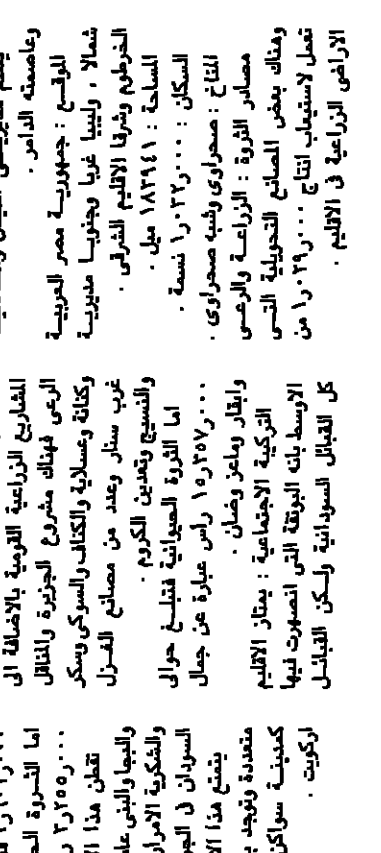 وعاصمته الدامر .
الموقع : جمهورية مصر العربية
شمالا ، وليبيا غربا وجنوبا مديرية
الخرطوم وشرقا الاقليم الشرقى .
المساحة : ١٨٣٩٤١ ميل .
السكان : ٠٠٠ر٠٣٢ر١ نسمة .
المناخ : صحراوى وشبه صحراوى .
مصادر الثروة : الزراعة والرعى
وهناك بعض المصانع التحويلية التى
تعمل لاستيعاب انتاج ٠٠٠ر٠٢٩ر١ من
الاراضى الزراعية فى الاقليم .
المشاريع الزراعية القومية بالاضافة الى
الرعى فهناك مشروع الجزيرة والمناقل
وكنانة وعسلاية والكناف والسوكى وسكر
غرب سنار وعدد من مصانع الغزل
والنسيج وتعدين الكروم .
اما الثروة الحيوانية فتبلغ حوالى
٠٠٠ر٣٥٧ر١٥ راس عبارة عن جمال
وابقار وماعز وضان .
التركيبة الاجتماعية : يمتاز الاقليم
الاوسط بانه البوتقة التى انصهرت فيها
كل القبائل السودانية ولكن القبائل
اما الثروة
٠٠٠ر٢٥٥ر٣
تقطن هذا
والبجا والبنى
والشكرية الامرار
السودان فى
يتمتع هذا
متعددة وتوجد
كمدينة سواكن
اركويت .